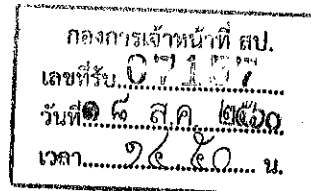 กองการเจ้าหน้าที่ สป.
เลขที่รับ 07157
วันที่ ๑๘ ส.ค. ๒๕๖๐
เวลา ๑๔.๕๐ น.